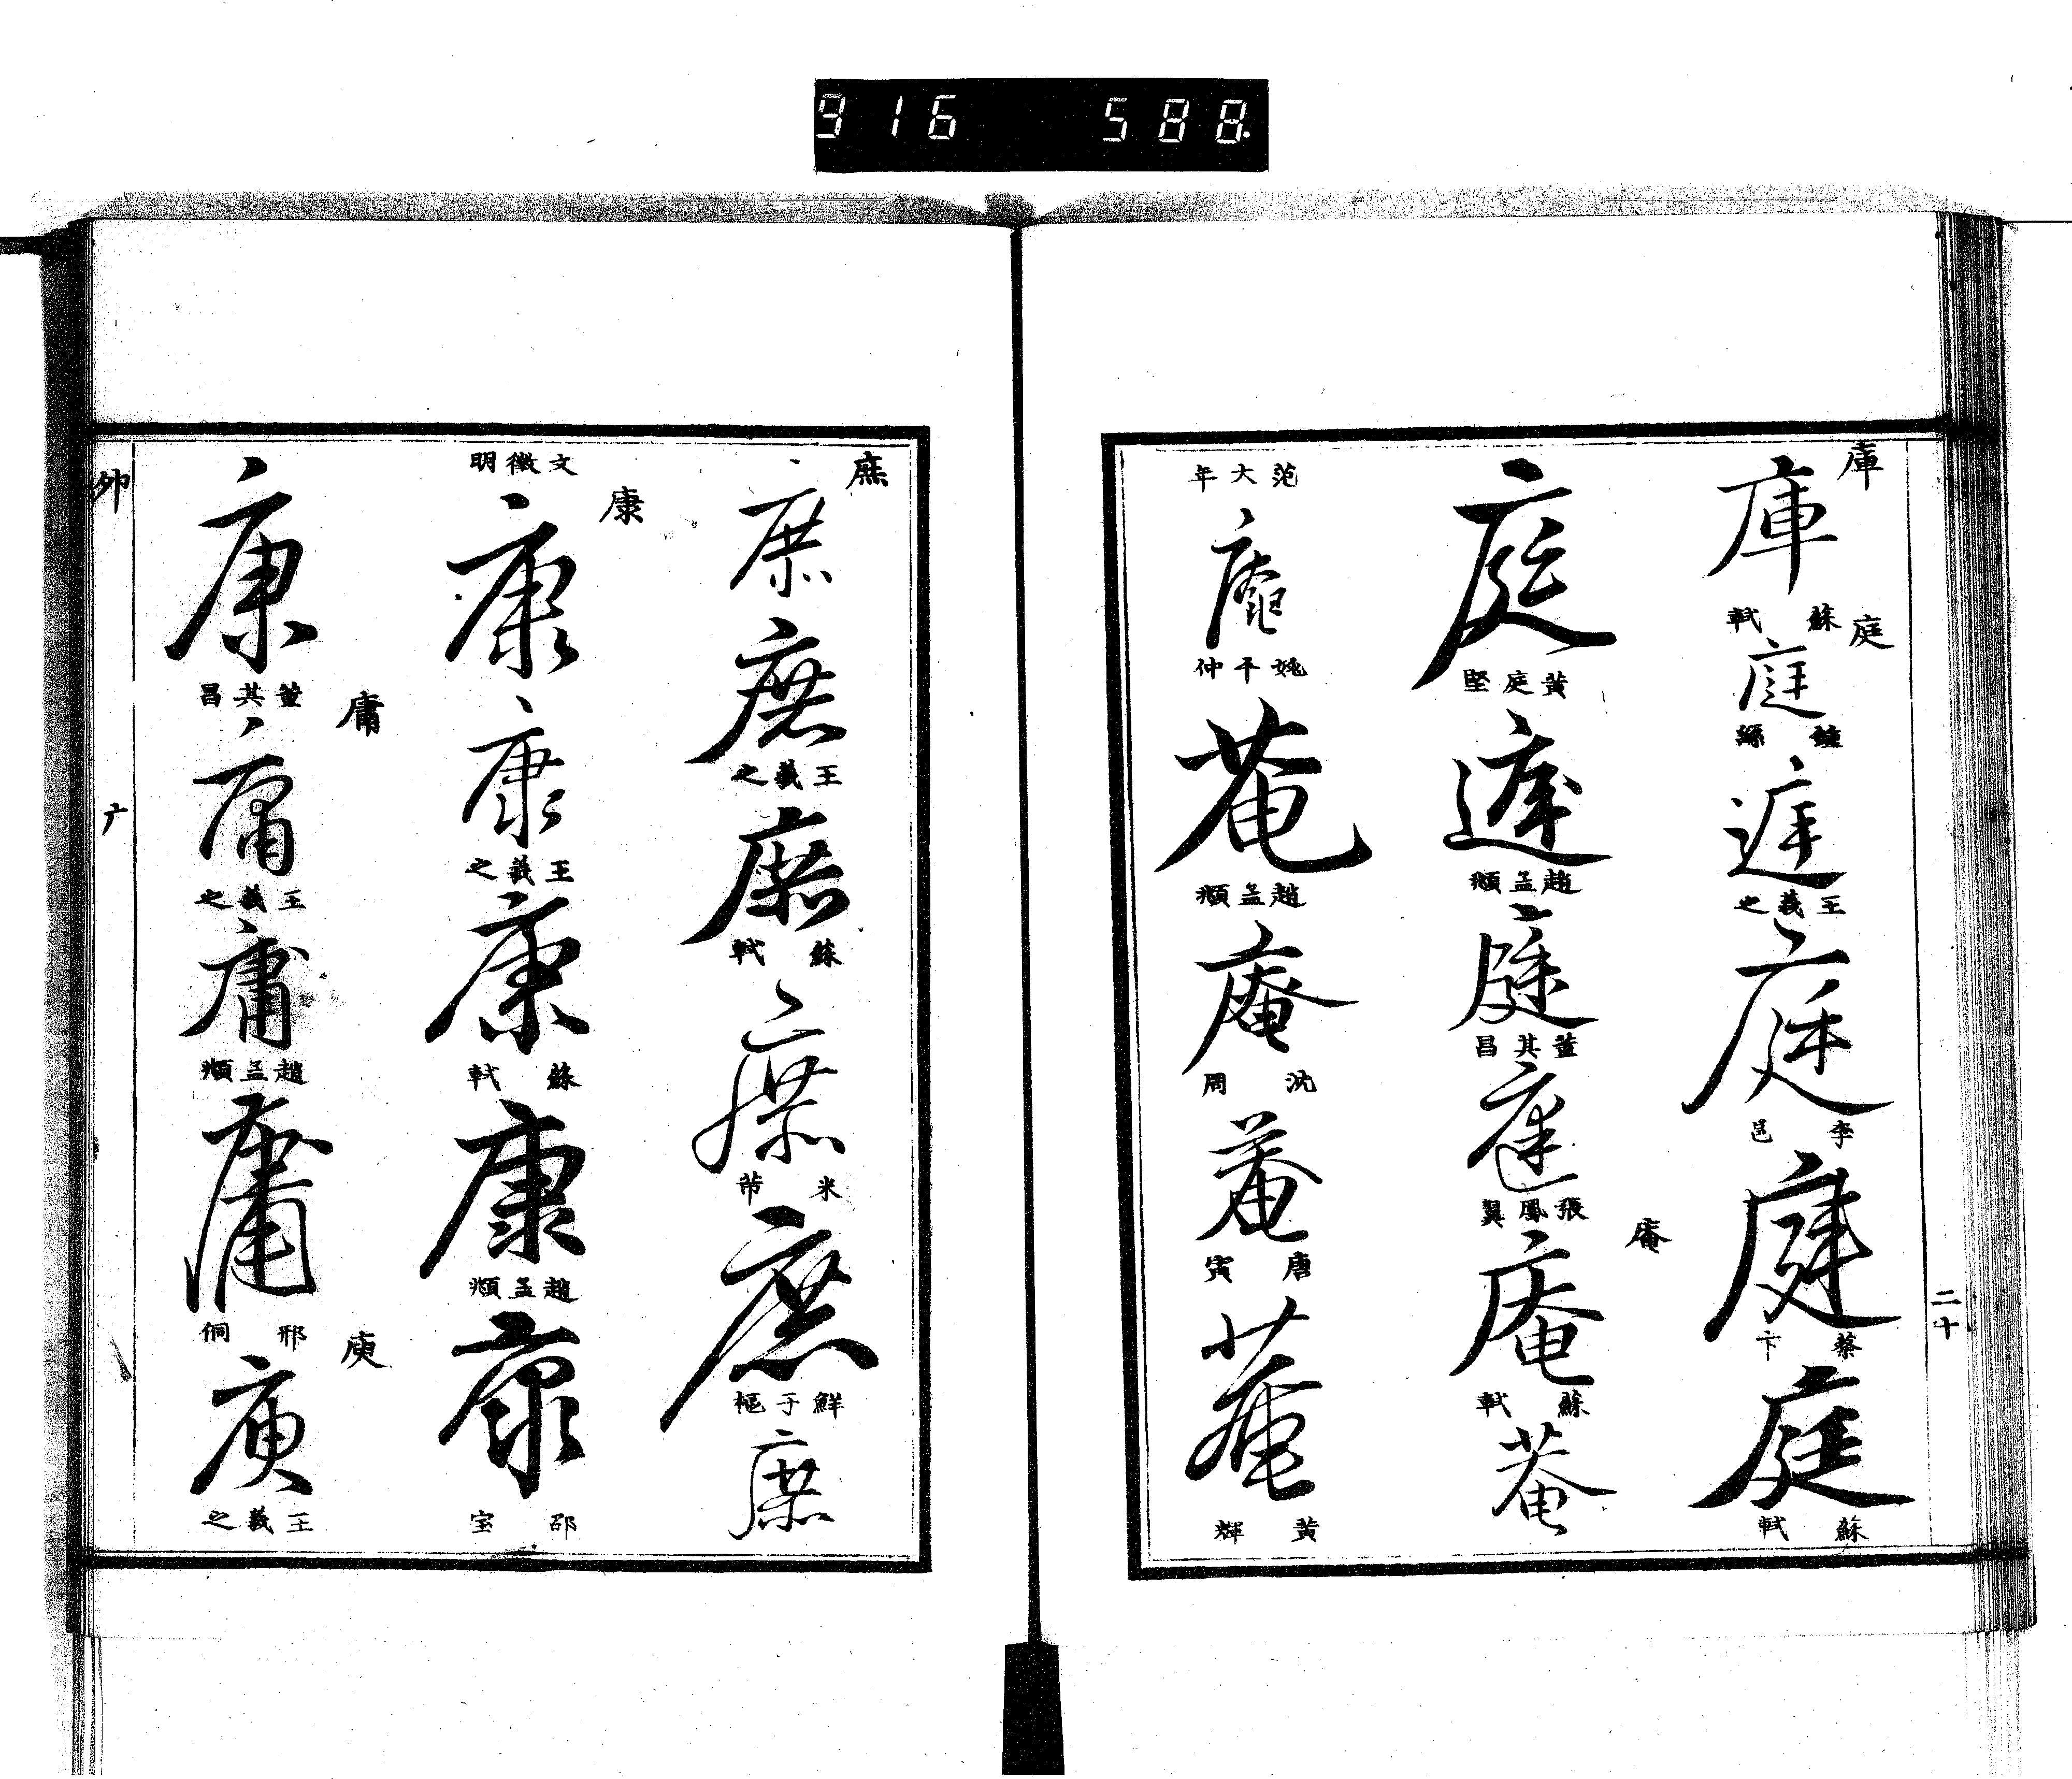 916 588
庫
庫
蘇軾
庭
庭
鐘繇
庭
王羲之
庭
李邕
庭
蔡卞
庭
蘇軾
庭
黃庭堅
庭
趙孟頫
庭
董其昌
庭
張鳳翼
庵
庵
蘇軾
菴
范大年
庵
姚子仲
菴
趙孟頫
庵
沈周
菴
唐寅
菴
黃輝
二十
庶
庶
庶
王羲之
庶
蘇軾
庶
米芾
庶
鮮于樞
庶
文徵明
康
康
康
王羲之
康
蘇軾
康
趙孟頫
康
邵宝
康
董其昌
庸
庸
王羲之
庸
趙孟頫
庸
邢侗
庾
庾
王羲之
卯
广